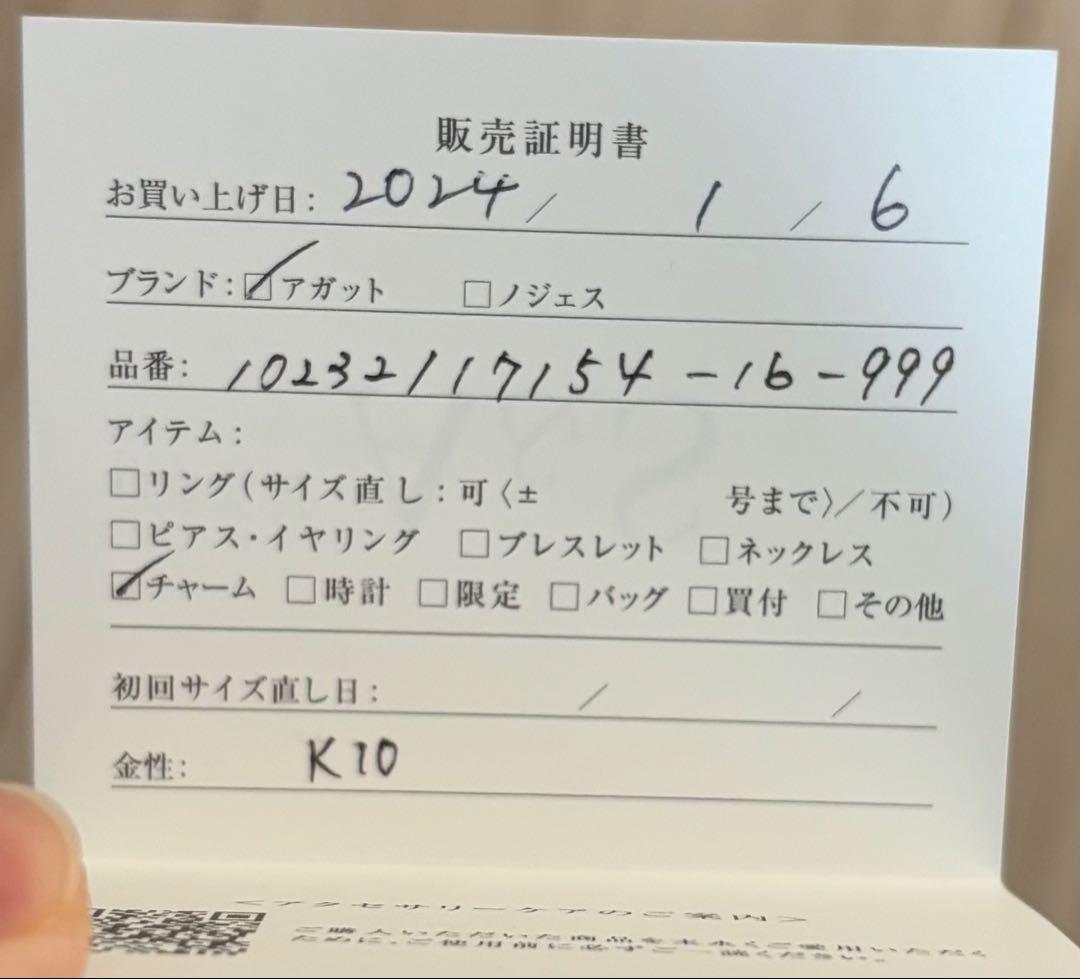 販売証明書
お買い上げ日: 2024 / 1 / 6
ブランド: ☑アガット □ノジェス
品番: 10232117154-16-999
アイテム:
□リング(サイズ直し:可〈± 号まで〉/不可)
□ピアス・イヤリング □ブレスレット □ネックレス
☑チャーム □時計 □限定 □バッグ □買付 □その他
初回サイズ直し日: / /
金性: K10
<アクセサリーケアのご案内>
ご購入いただいた商品を末永くご愛用いただく
ために、ご使用前に必ずご一読ください。